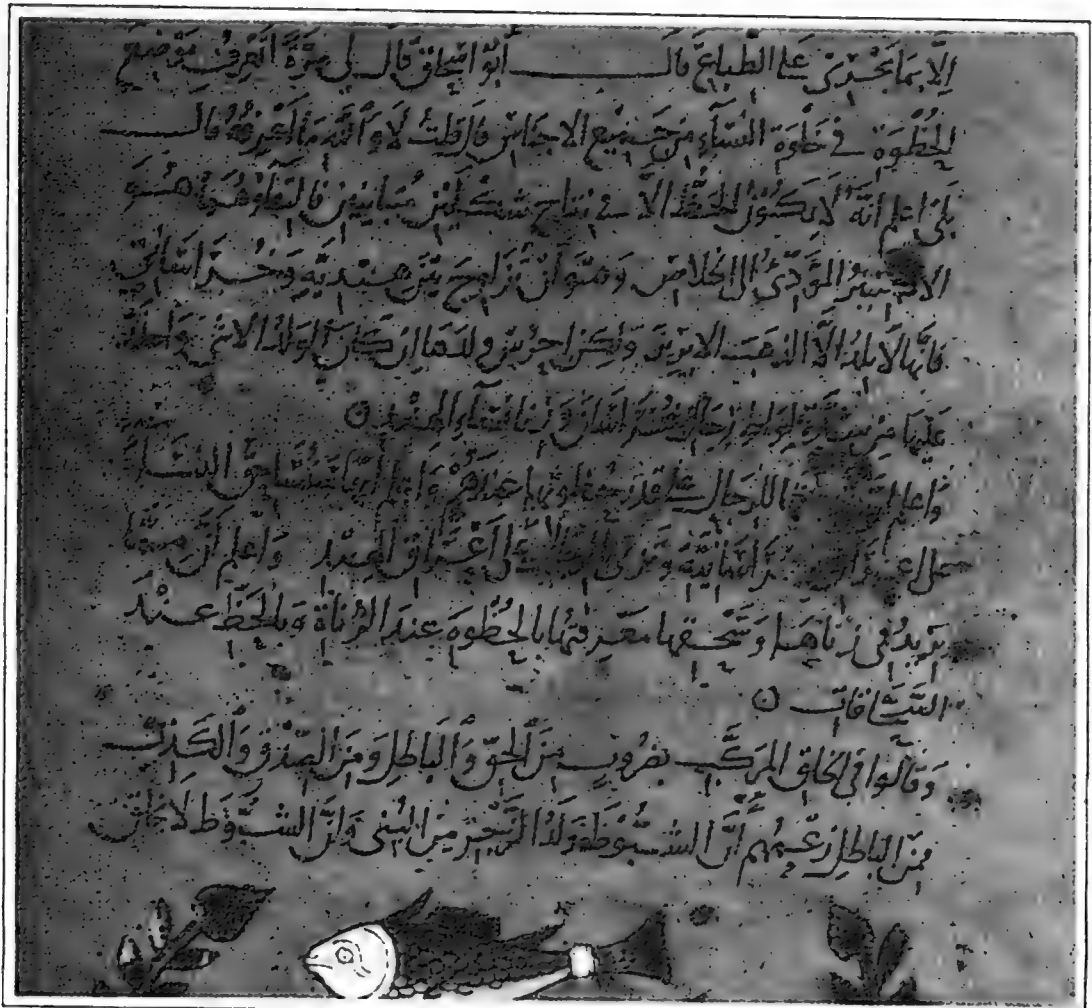 الا بما يجدى على الطباع قال ابو اسحاق قال لى مرة اتعرف موضع
الحظوة فى خلوة النساء من جميع الاجناس قال قلت لا والله ما اعرفه قال
بلى اعلم انه لا يكون الحظ الا فى نتاج شكلين متباينين فالتقاؤهما هو
الاكسير المؤدى الى الخلاص وهو ان تزاوج بين هندية وخراسانى
فانها لا تلد الا الذهب الابريز ولكن احرس ولدها ان كان الولد الانثى واحذر
عليها من شدة لواط رجال خراسان وزنا نساء الهند
واعلم الرجال على قدر حظوتها عندهم واعلم انها ستساحق النساء
على اعراق الخراسانية وتزنى بالرجال على اعراق الهند واعلم ان مما
يزيد فى زناها وسحقها معرفتها بالحظوة عند الزناة وبالحظ عند
السحاقات
وقالوا فى الخلق المركب بضروب من الحق والباطل ومن الصدق والكذب
فمن الباطل زعمهم ان الشبوطة ولد الزجر من البنى وان الشبوط لا يخلق